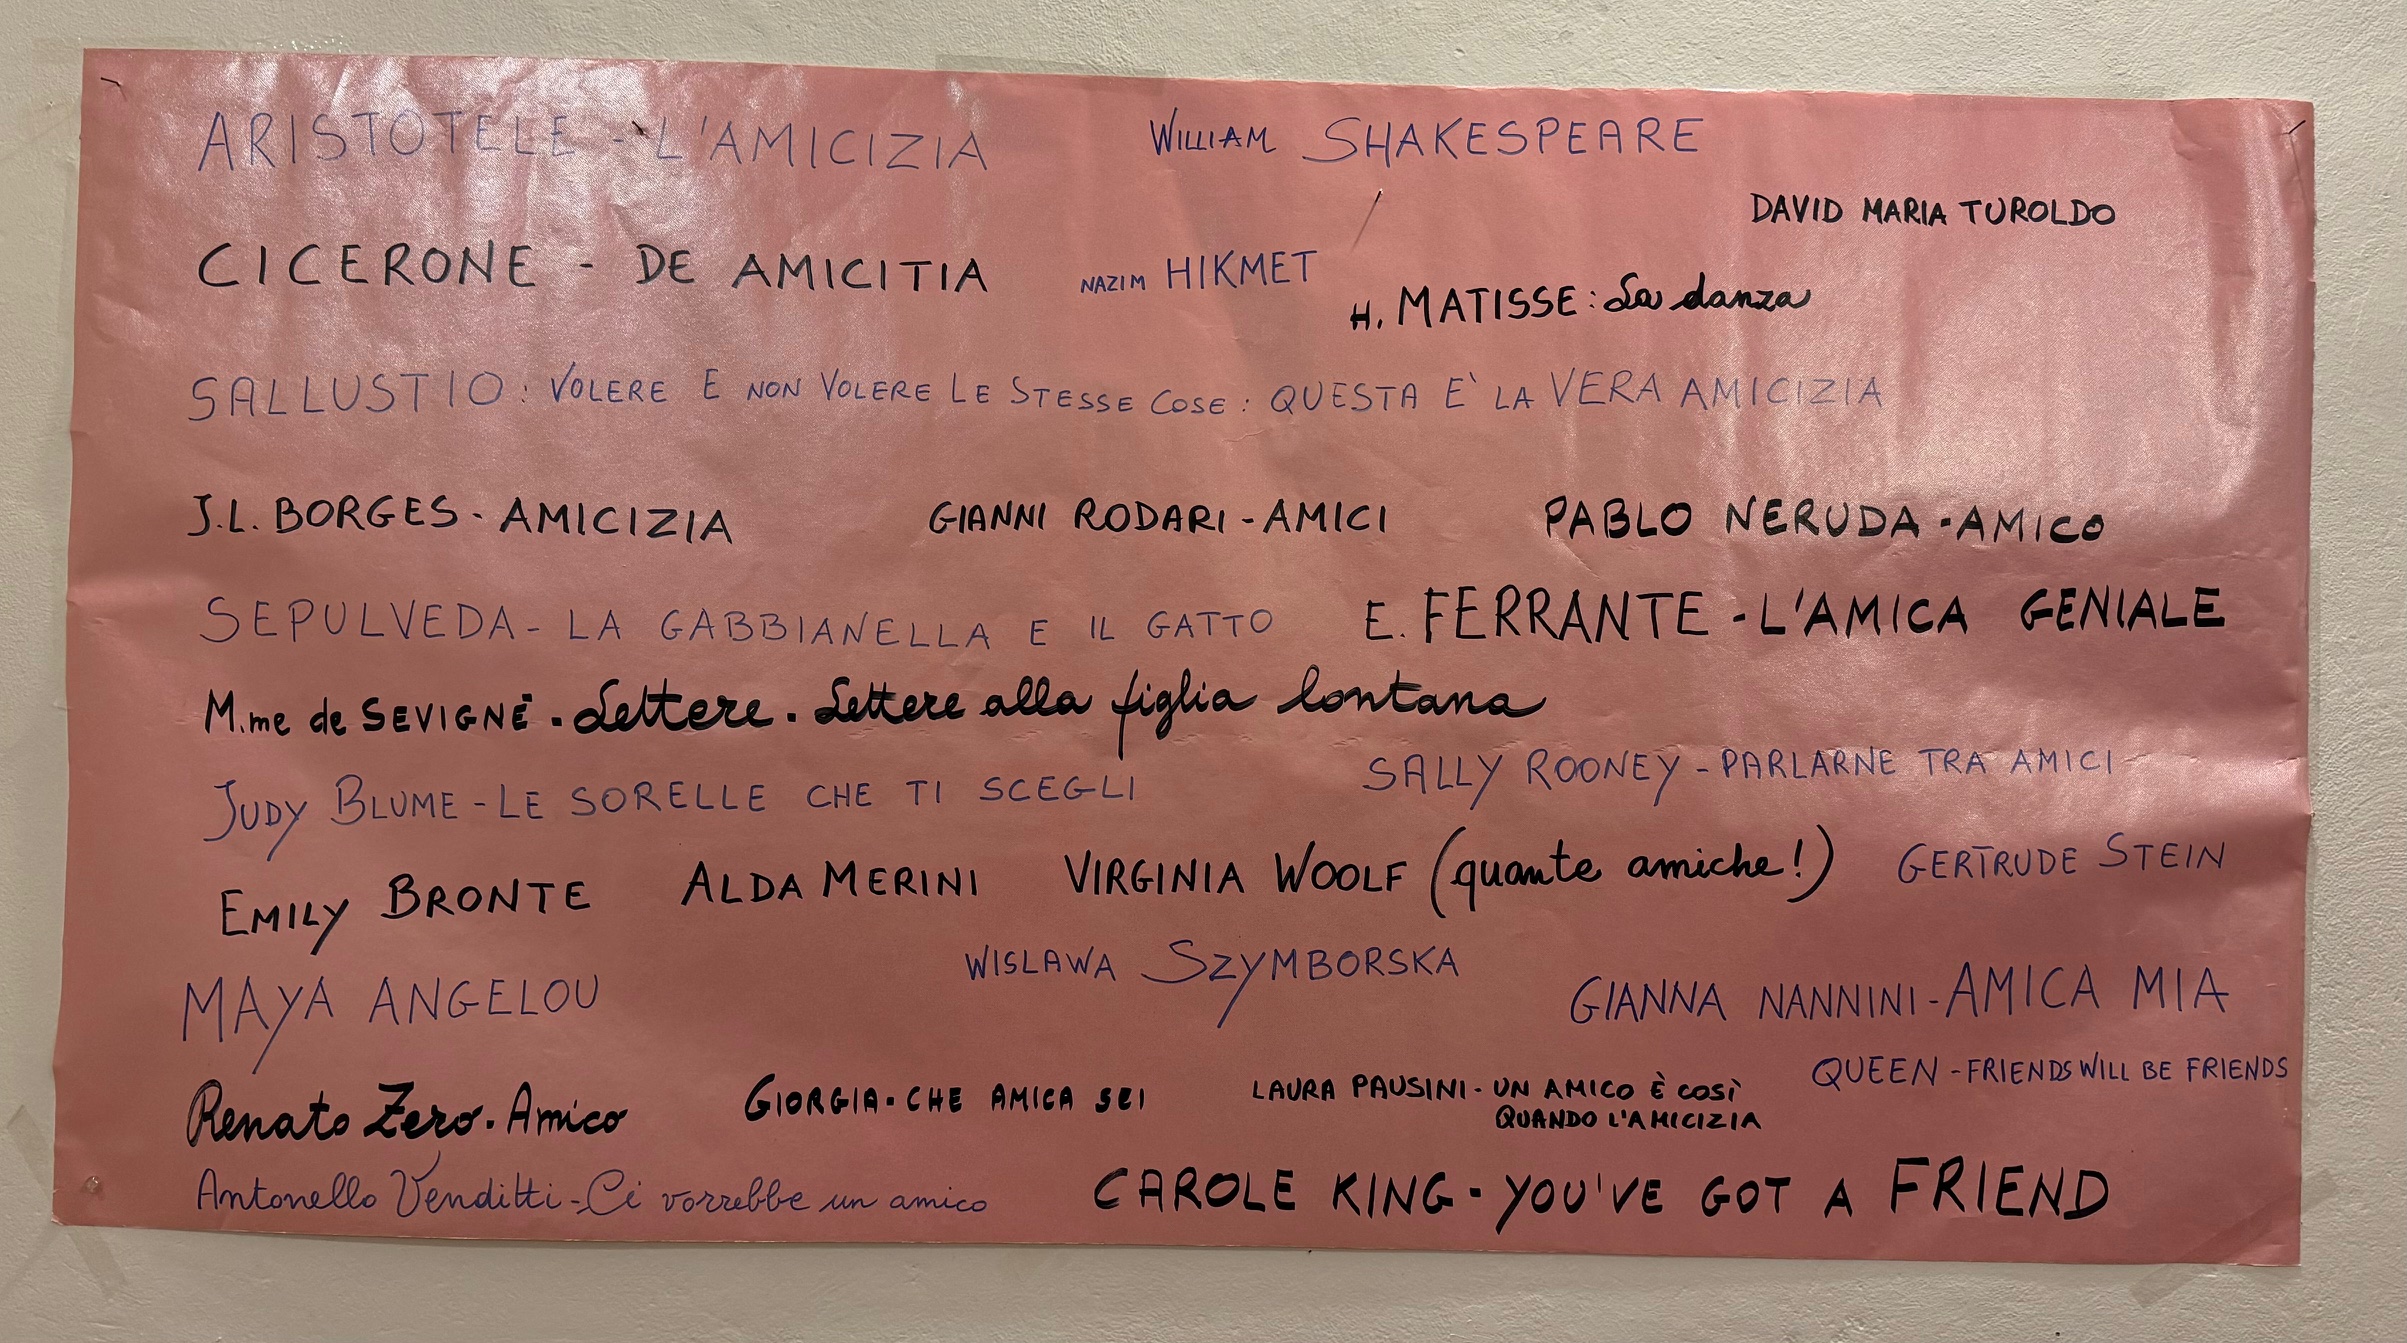 ARISTOTELE - L'AMICIZIA
WILLIAM SHAKESPEARE
DAVID MARIA TUROLDO
CICERONE - DE AMICITIA
NAZIM HIKMET
H. MATISSE: La danza
SALLUSTIO: VOLERE E NON VOLERE LE STESSE COSE: QUESTA E' LA VERA AMICIZIA
J.L. BORGES - AMICIZIA
GIANNI RODARI - AMICI
PABLO NERUDA - AMICO
SEPULVEDA - LA GABBIANELLA E IL GATTO
E. FERRANTE - L'AMICA GENIALE
M.me de SEVIGNÉ. Lettere. Lettere alla figlia lontana
JUDY BLUME - LE SORELLE CHE TI SCEGLI
SALLY ROONEY - PARLARNE TRA AMICI
EMILY BRONTE
ALDA MERINI
VIRGINIA WOOLF (quante amiche!)
GERTRUDE STEIN
MAYA ANGELOU
WISLAWA SZYMBORSKA
GIANNA NANNINI - AMICA MIA
QUEEN - FRIENDS WILL BE FRIENDS
Renato Zero. Amico
GIORGIA - CHE AMICA SEI
LAURA PAUSINI - UN AMICO È COSÌ
QUANDO L'AMICIZIA
Antonello Venditti - Ci vorrebbe un amico
CAROLE KING - YOU'VE GOT A FRIEND